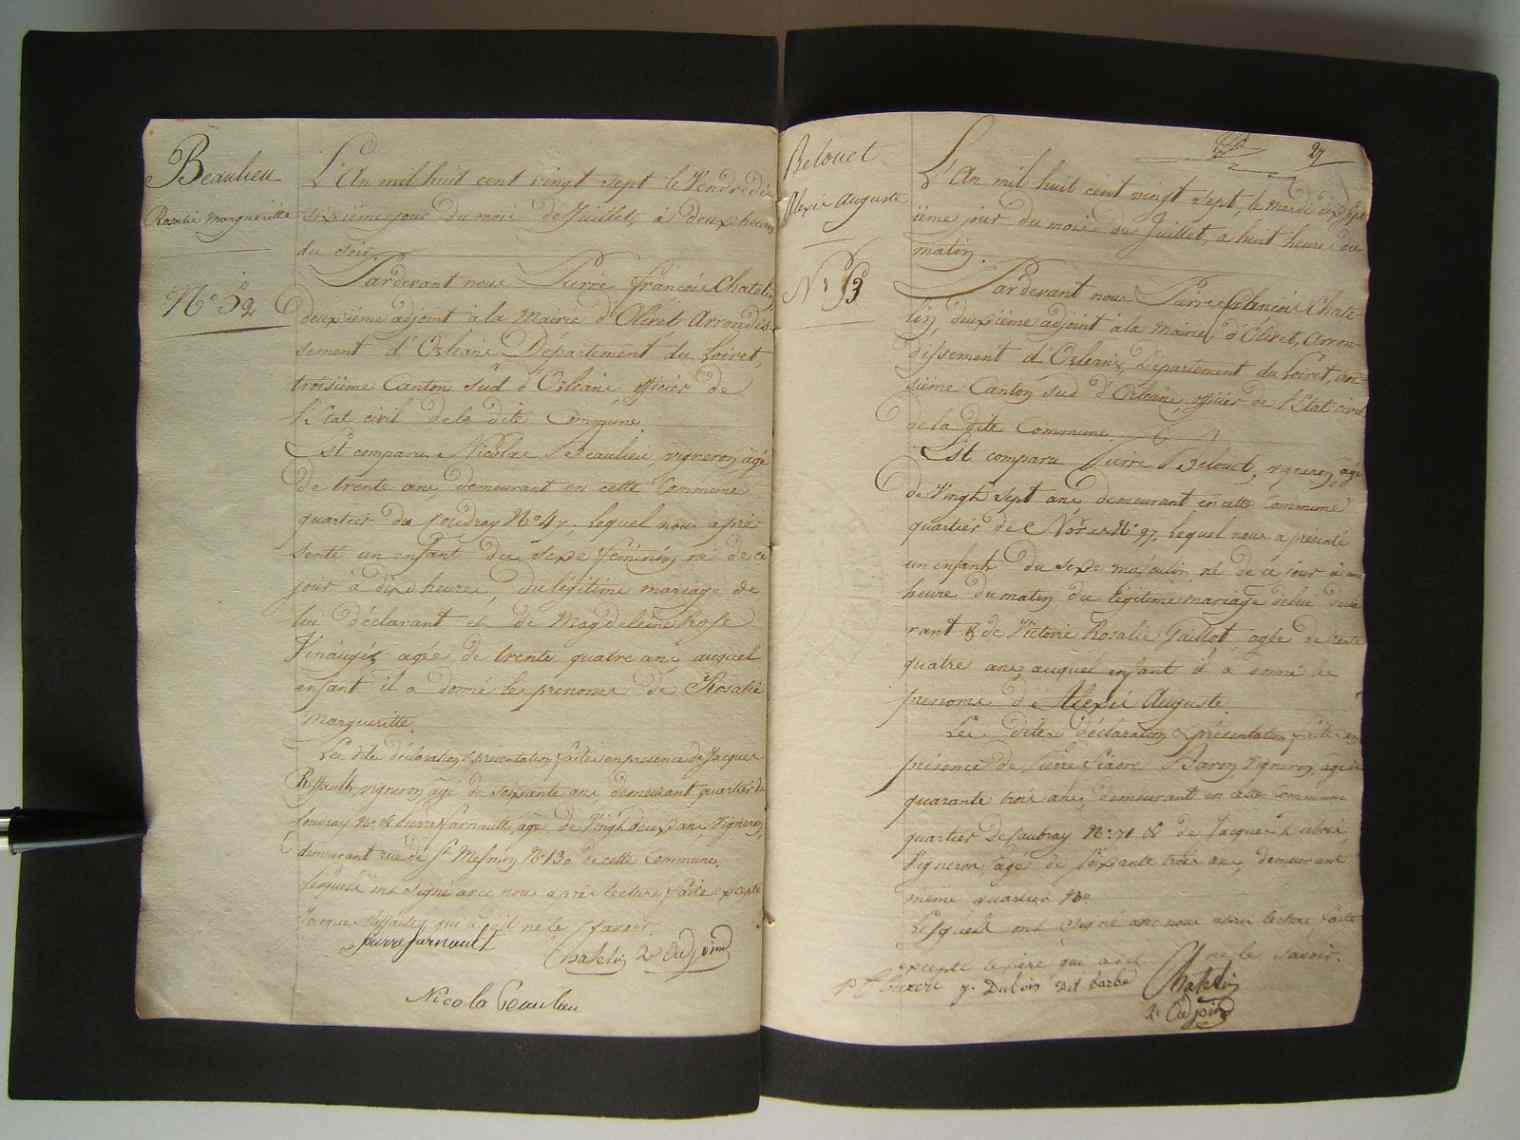 Beaulieu
Rosalie Margueritte
N° 52
L'An mil huit cent vingt sept le Vendredi
sixième jour du mois de Juillet, à deux heures
du soir.
Pardevant nous Pierre françois Chatelin
deuxième adjoint à la Mairie d'Olivet Arrondis-
sement d'Orléans Département du Loiret,
troisième Canton sud d'Orléans officier de
l'Etat civil de la dite Commune.
Est comparu Nicolas Beaulieu, vigneron âgé
de trente ans, demeurant en cette Commune
quartier du Coudray N° 47, lequel nous a pré-
senté un enfant du sexe féminin né de ce
jour à dix heures, du légitime mariage de
lui déclarant et de Magdeleine Rose
agée de trente quatre ans auquel
enfant il a donné les prenoms de Rosalie
Margueritte.
Les dites déclaration & présentation faites en presence de Jacques
vigneron âgé de soixante ans demeurant quartier du
Coudray N° & Pierre farnault, agé de Vingt deux ans, Vigneron,
demeurant rue de St Mesmin N° 130 de cette Commune,
lesquels ont signé avec nous après lecture faite excepté
Jacques qui a dit ne le savoir.
Pierre farnault
Chatelin 2e Adjoint
Nicola Beaulieu
27
Belouet
Alexis Auguste
N° 53
L'An mil huit cent vingt sept, le mardi dix sept
ième jour du mois de Juillet, à huit heures du
matin.
Pardevant nous Pierre françois Chate-
lin, deuxième adjoint à la Mairie d'Olivet, Arron-
dissement d'Orléans, Département du Loiret, troi-
sième Canton sud d'Orléans, officier de l'Etat civil
de la dite Commune.
Est comparu Pierre Belouet, vigneron, agé
de Vingt sept ans, demeurant en cette Commune
quartier de N° 97, lequel nous a présenté
un enfant du sexe masculin né de ce jour à une
heure du matin du légitime mariage de lui décla
rant & de Victoire Rosalie Gaillot, agée de trente
quatre ans, auquel enfant il a donné les
prenoms de Alexis Auguste.
Les dites déclaration & présentation faites en
présence de Pierre fiacre Baron vigneron, agé de
quarante trois ans, demeurant en cette Commune
quartier de N° 71 & de Jacques
Vigneron, agé de soixante trois ans, demeurant
même quartier
Lesquels ont signé avec nous après lecture faite
excepté le père qui a dit ne le savoir.
Dubois dit barbe
Chatelin
2e Adjoint